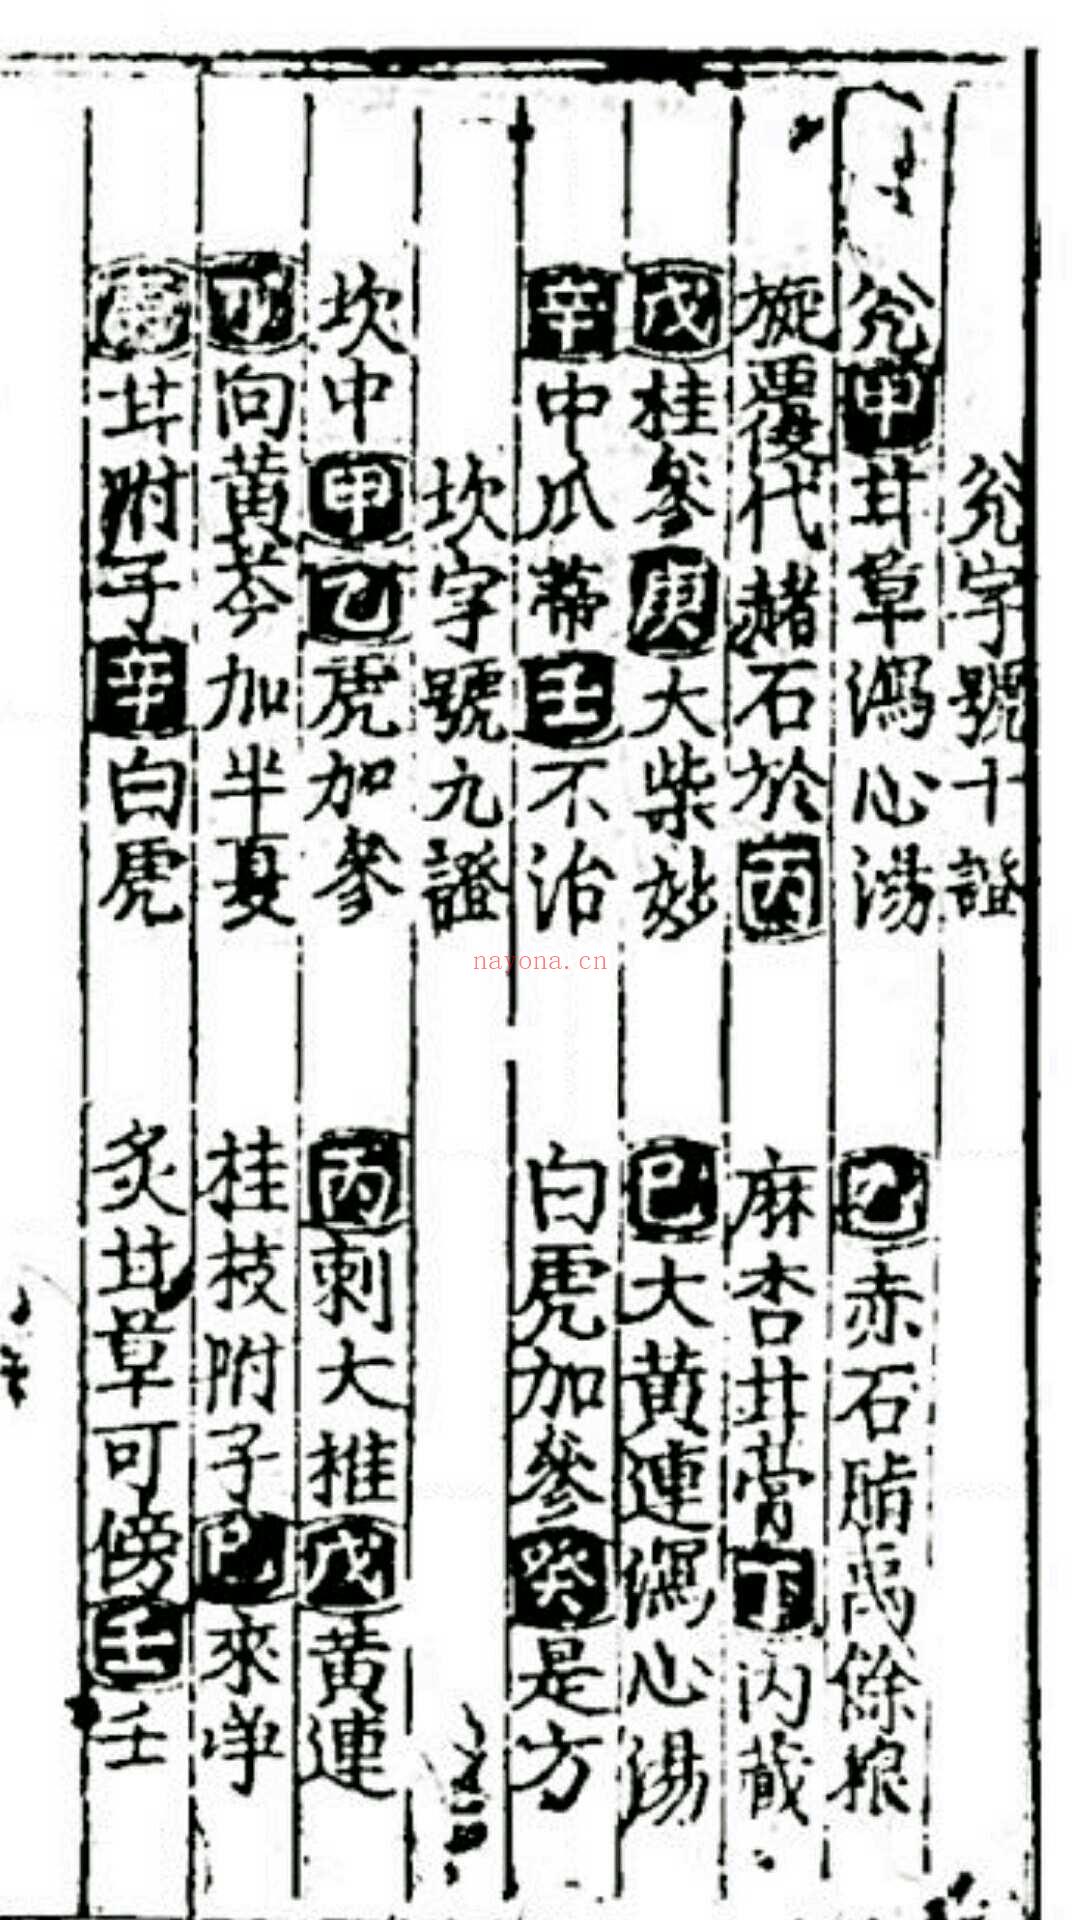 兊字號十證
兊甲甘草瀉心湯 乙赤石脂禹餘粮
旋覆代赭石於丙 麻杏甘膏丁内藏
戊桂參庚大柴妙 巳大黄連瀉心湯
辛中瓜蒂壬不治 白虎加參癸是方
坎字號九證
坎中甲乙虎加參 丙刺大椎戊黄連
丁向黄芩加半夏 桂枝附子巳來
庚甘附子辛白虎 炙甘草可傍壬壬
nayona.cn